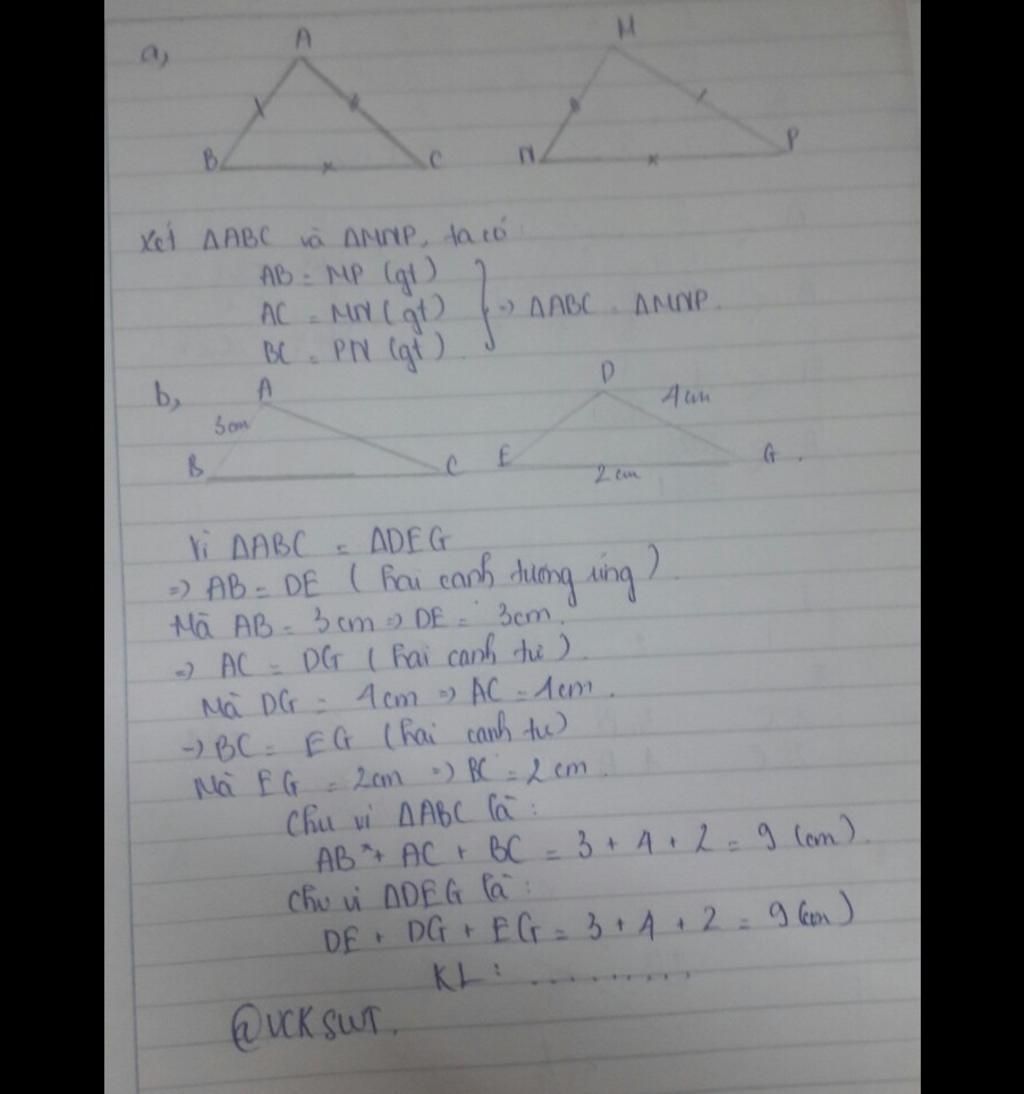 a,
A
M
B
C
N
P
Xét ΔABC và ΔMNP, ta có
AB = MP (gt)
AC = MN (gt) } => ΔABC = ΔMNP.
BC = PN (gt)
b,
A
D
3cm
4cm
B
C
E
G.
2cm
Vì ΔABC = ΔDEG
=> AB = DE (hai cạnh tương ứng)
Mà AB = 3cm => DE = 3cm.
=> AC = DG (hai cạnh tư)
Mà DG = 4cm => AC = 4cm.
-> BC = EG (hai cạnh tư)
Mà EG = 2cm => BC = 2cm.
Chu vi ΔABC là:
AB + AC + BC = 3 + 4 + 2 = 9 (cm).
Chu vi ΔDEG là:
DE + DG + EG = 3 + 4 + 2 = 9 (cm)
KL: ..........
@VCKSWT.